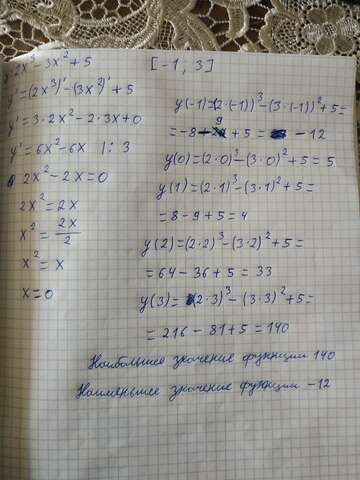 y=2x³-3x²+5 [-1; 3]
y'=(2x³)'-(3x²)'+5
y'=3·2x²-2·3x+0
y'=6x²-6x |: 3
2x²-2x=0
2x²=2x
x²=2x/2
x²=x
x=0
y(-1)=(2·(-1))³-(3·(-1))²+5=
=-8-9+5=-12
y(0)=(2·0)³-(3·0)²+5=5
y(1)=(2·1)³-(3·1)²+5=
=8-9+5=4
y(2)=(2·2)³-(3·2)²+5=
=64-36+5=33
y(3)=(2·3)³-(3·3)²+5=
=216-81+5=140
Наибольшее значение функции 140
Наименьшее значение функции -12